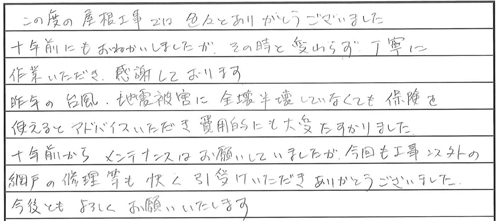 この度の屋根工事では色々とありがとうございました
十年前にもおねがいしましたが、その時と変わらず丁寧に
作業いただき、感謝しております
昨年の台風、地震被害に全壊半壊していなくても保険を
使えるとアドバイスいただき費用的にも大変たすかりました
十年前からメンテナンスはお願いしていましたが、今回も工事以外の
網戸の修理等も快く引受けいただきありがとうございました。
今後ともよろしくお願いいたします